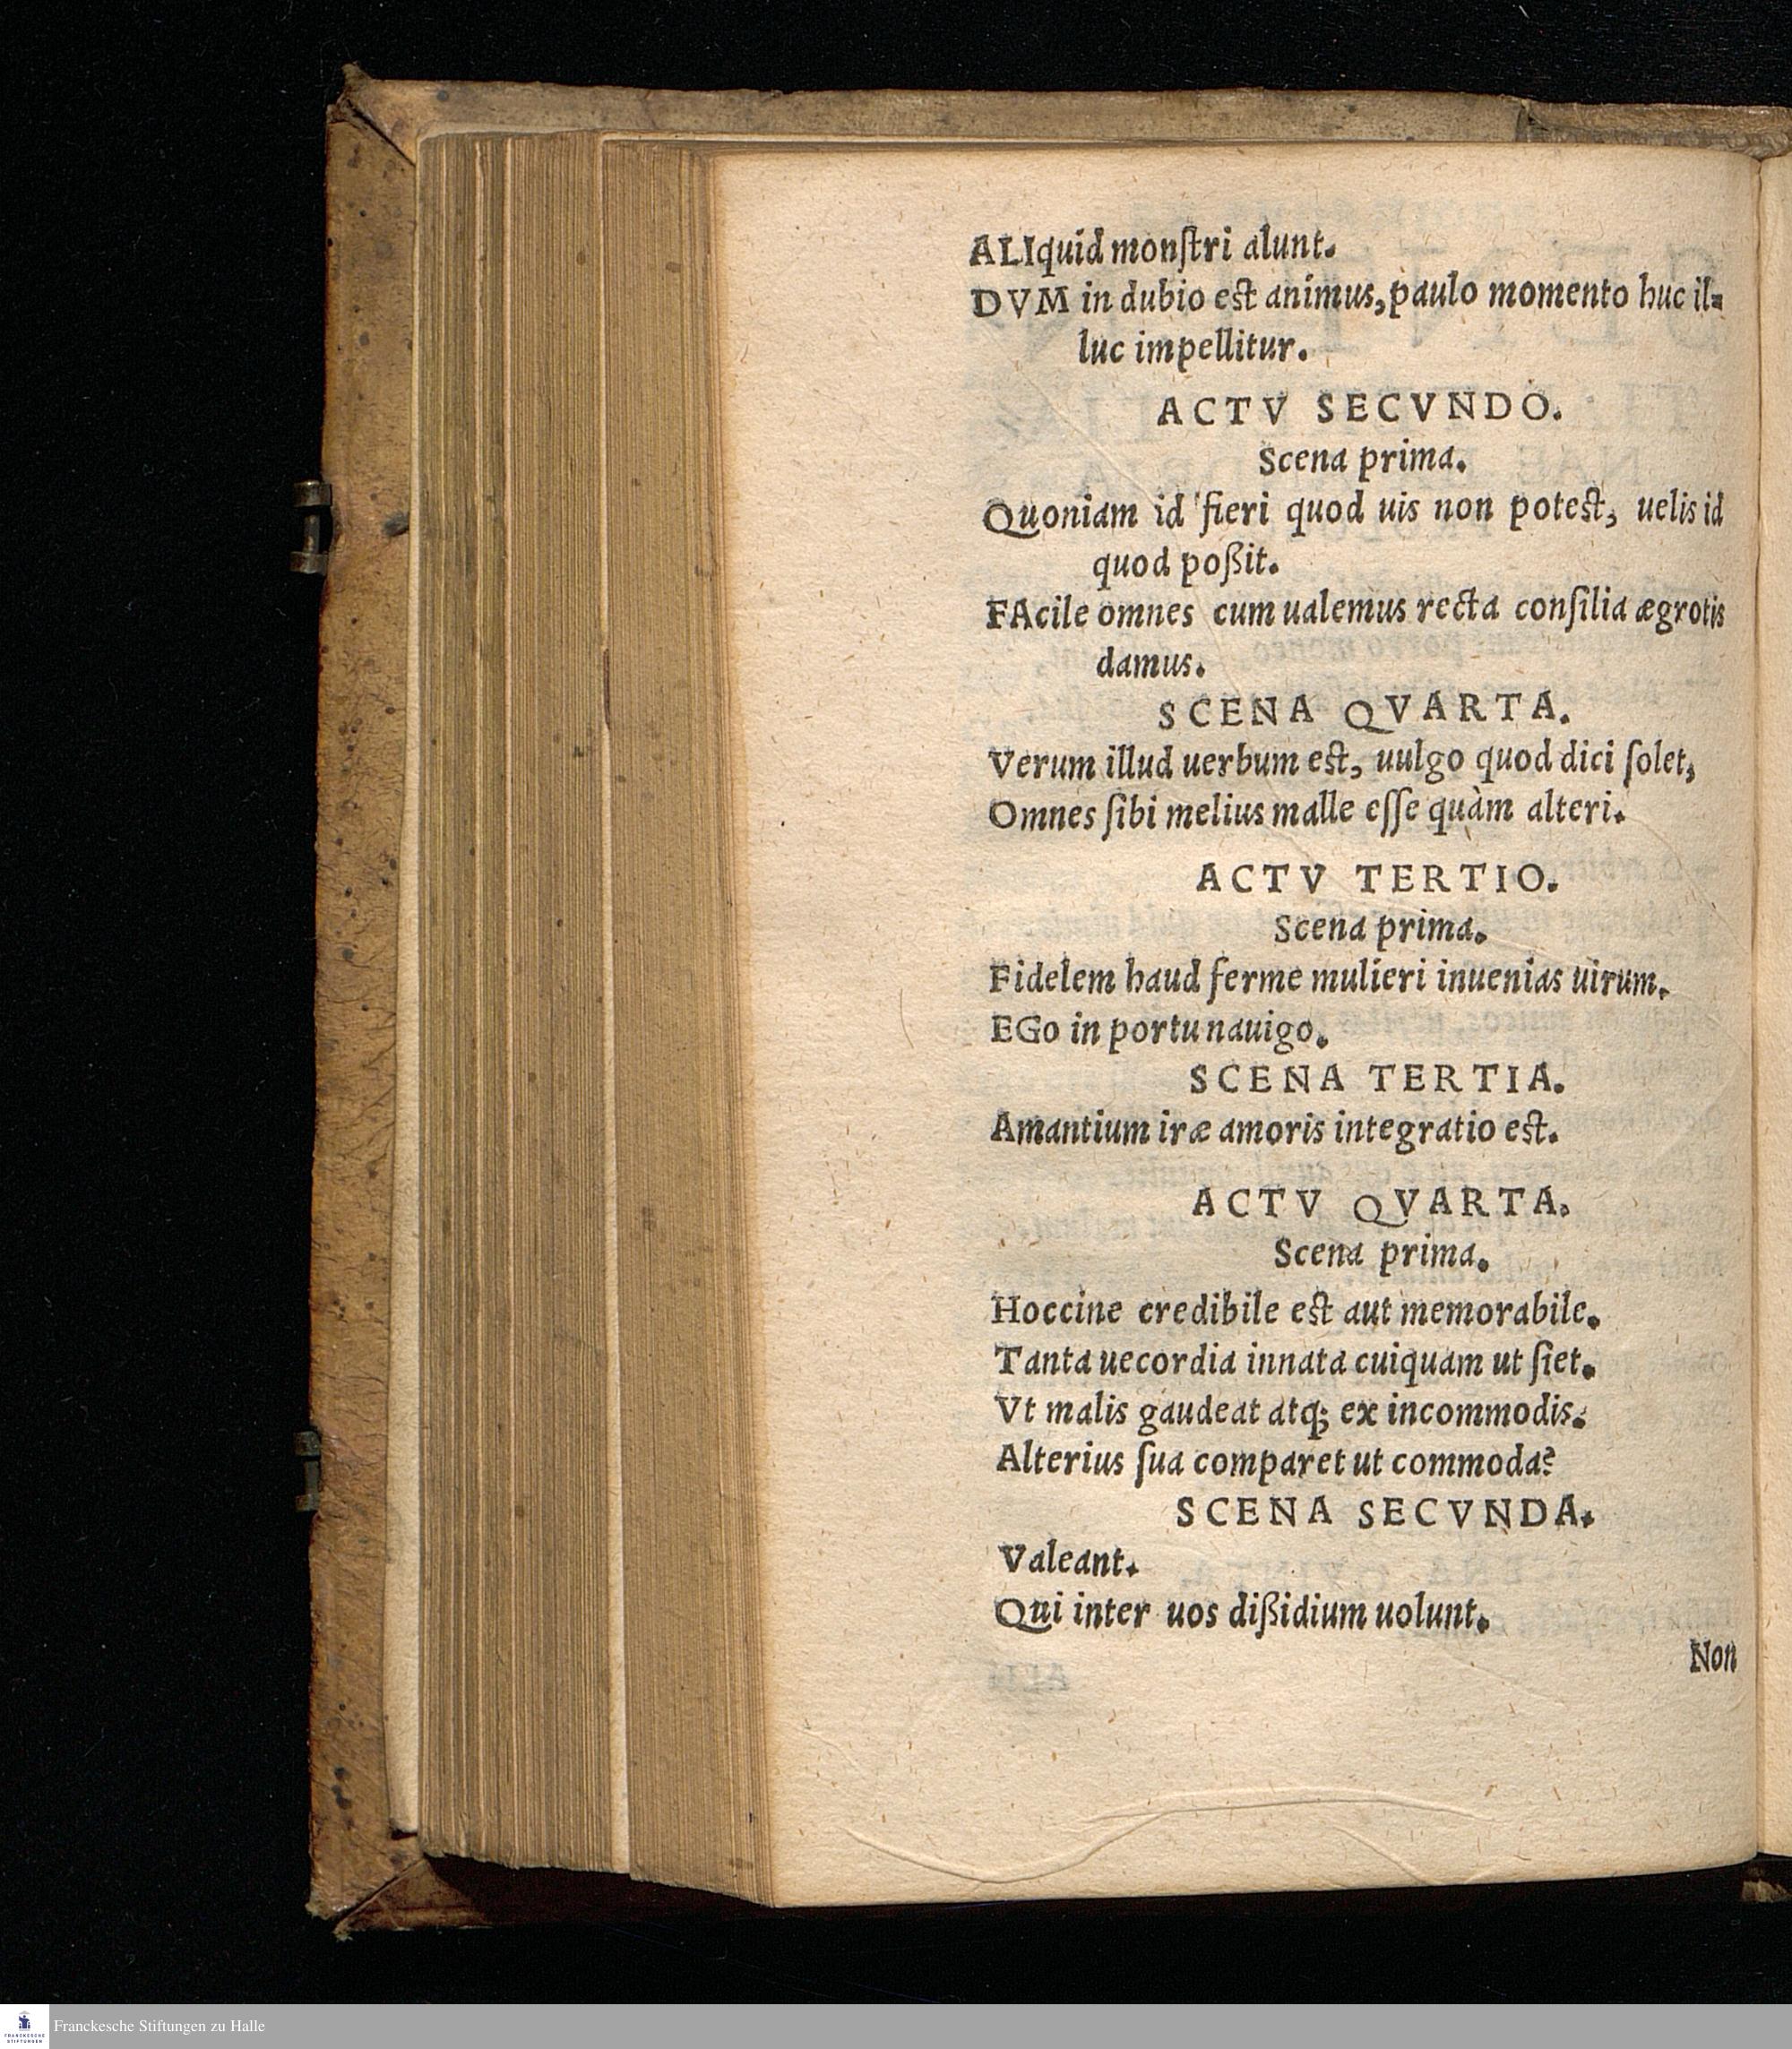 ALIquid monſtri alunt.
DVM in dubio est animus, paulo momento huc il=
luc impellitur.
ACTV SECVNDO.
Scena prima.
Quoniam id fieri quod uis non potest, uelis id
quod poßit.
FAcile omnes cum ualemus recta conſilia ægrotis
damus.
SCENA QVARTA.
Verum illud uerbum est, uulgo quod dici ſolet,
Omnes ſibi melius malle eſſe quàm alteri.
ACTV TERTIO.
Scena prima.
Fidelem haud ferme mulieri inuenias uirum.
EGo in portu nauigo.
SCENA TERTIA.
Amantium iræ amoris integratio est.
ACTV QVARTA.
Scena prima.
Hoccine credibile est aut memorabile.
Tanta uecordia innata cuiquam ut ſiet.
Vt malis gaudeat atq; ex incommodis.
Alterius ſua comparet ut commoda?
SCENA SECVNDA.
Valeant.
Qui inter uos dißidium uolunt.
Non
FRANCKESCHE
STIFTUNGEN
Franckesche Stiftungen zu Halle